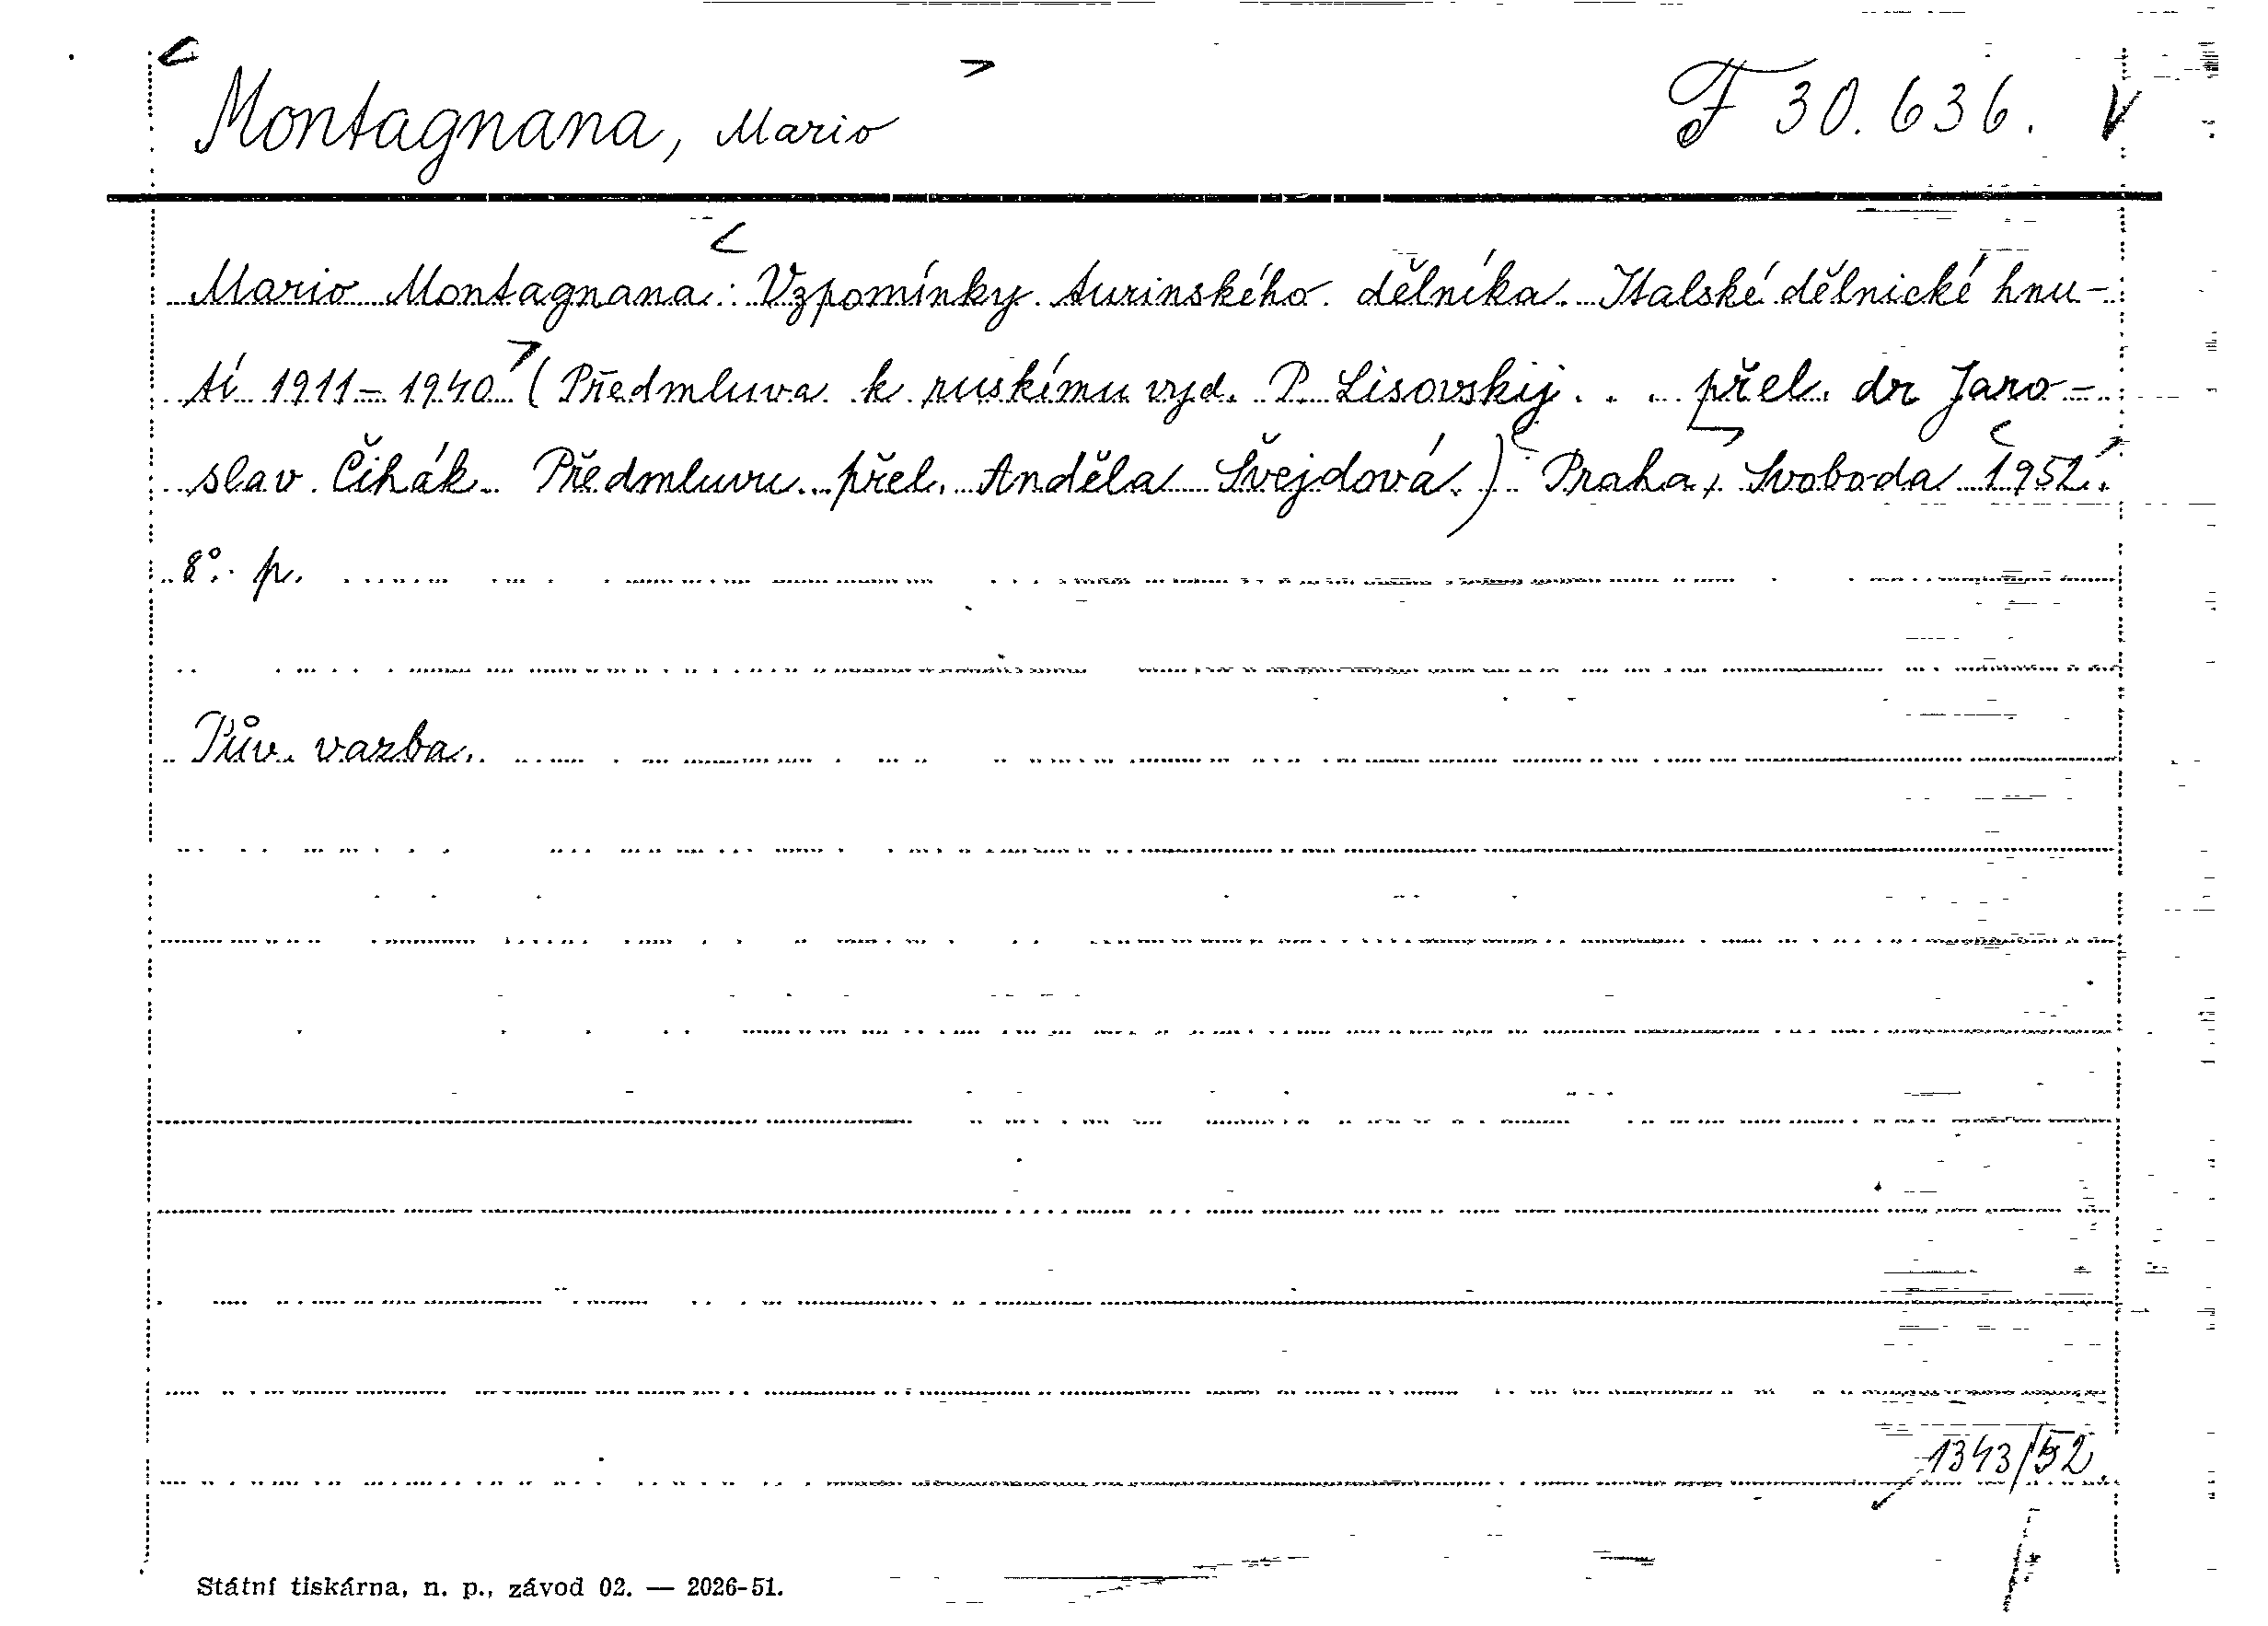 Montagnana, Mario
F 30.636. V
Mario Montagnana: Vzpomínky turinského dělníka. Italské dělnické hnu-
tí 1911-1940 (Předmluva k ruskému vyd. P. Lisovskij . . . přel. dr Jaro-
slav Čihák. Předmluvu přel. Anděla Švejdová.) Praha, Svoboda 1952.
8°. p.
Pův. vazba.
1343/52.
Státní tiskárna, n. p., závod 02. — 2026-51.